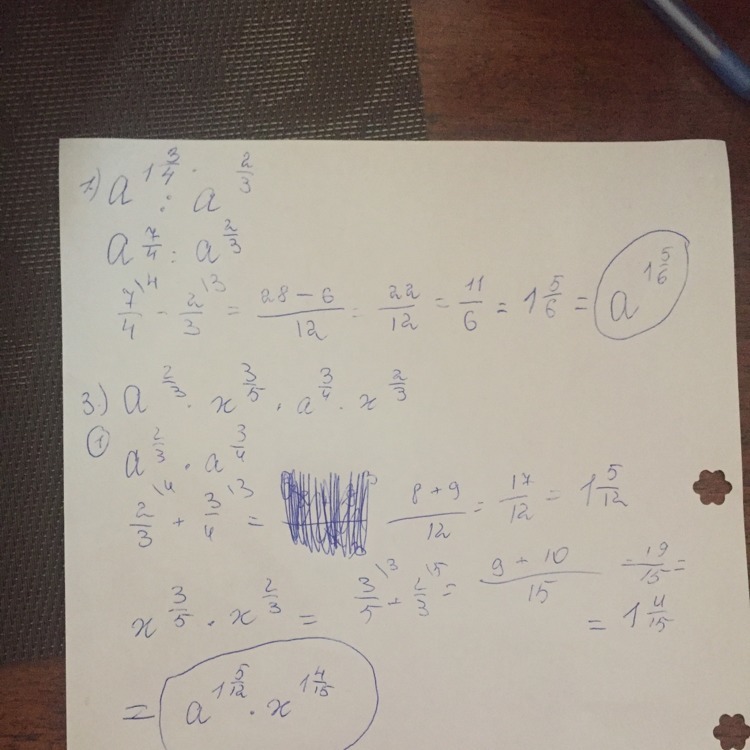 1) a^{1 3/4} : a^{2/3}
a^{7/4} : a^{2/3}
7/4 \4 - 2/3 \3 = (28 - 6)/12 = 22/12 = 11/6 = 1 5/6 = a^{1 5/6}
3.) a^{2/3} · x^{3/5} · a^{3/4} · x^{2/3}
① a^{2/3} · a^{3/4}
2/3 \4 + 3/4 \3 = (8 + 9)/12 = 17/12 = 1 5/12
x^{3/5} · x^{2/3} = 3/5 \3 + 2/3 \5 = (9 + 10)/15 = 19/15 =
= 1 4/15
= a^{1 5/12} · x^{1 4/15}